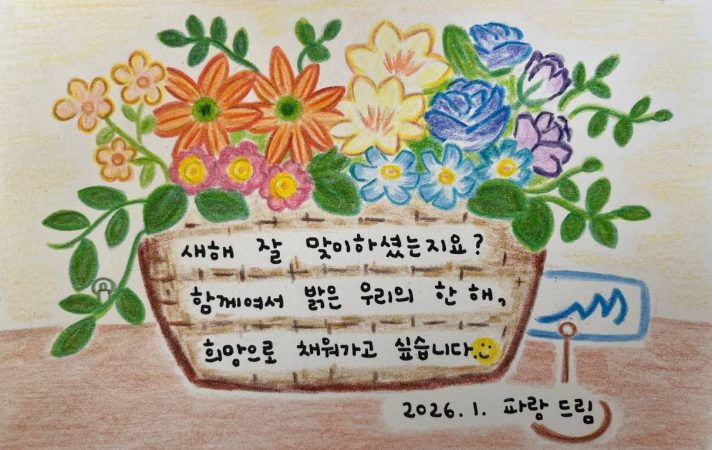 새해 잘 맞이하셨는지요?
함께여서 밝은 우리의 한 해,
희망으로 채워가고 싶습니다.
2026. 1. 파랑 드림